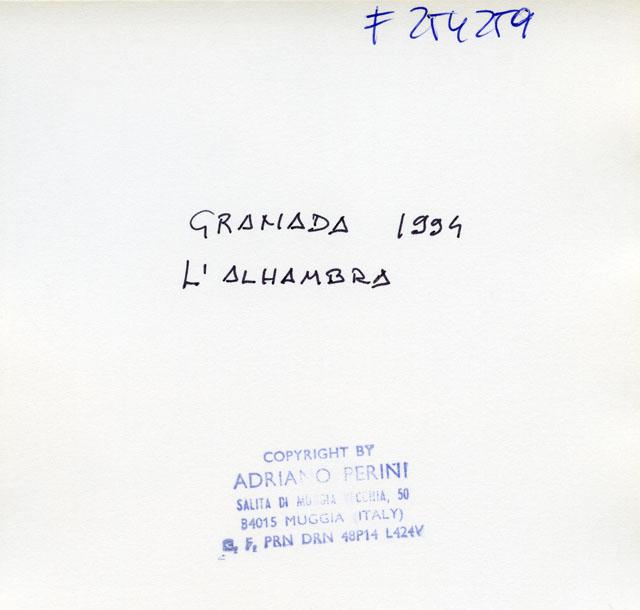 F 254259
GRANADA 1994
L'ALHAMBRA
COPYRIGHT BY
ADRIANO PERINI
SALITA DI MUGGIA VECCHIA, 50
34015 MUGGIA (ITALY)
F. PRN DRN 48P14 L424V